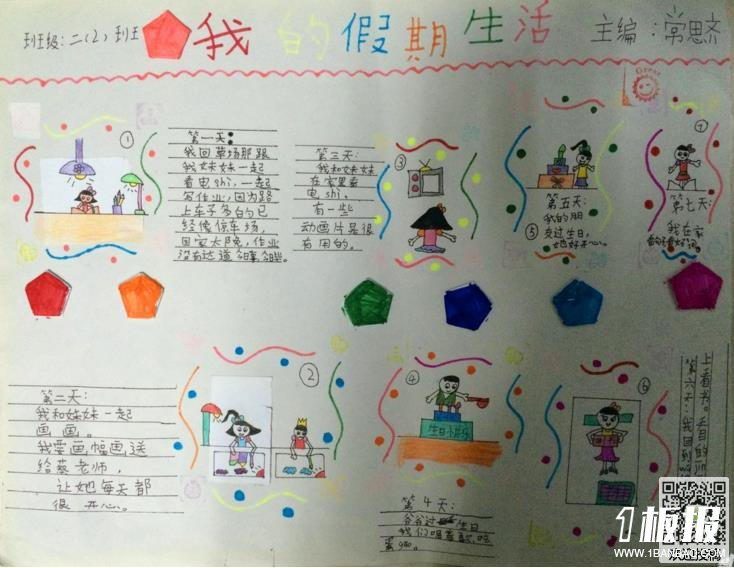 班级:二(2)班
我的假期生活
主编:常思齐
①
第一天:
我回草场那跟
我妹妹一起
看电shì,一起
写作业,因为路
上车子多的已
经像停车场,
回家太晚,作业
第三天:
我和妹妹
在家里看
电shì,
有一些
动画片是很
有用的。
③
第五天:
我的朋
⑤
友过生日,
她好开心。
⑦
第七天:
我在家
第二天:
我和妹妹一起
画画。
我要画幅画送
给蔡老师,
让她每天都
很开心。
②
④
生日快乐
第4天:
爷爷过生日
我们唱着歌,吃
蛋gāo。
⑥
第六天:我回到
上看书。
1板报
WWW.1BANBAO.COM
欢迎投稿